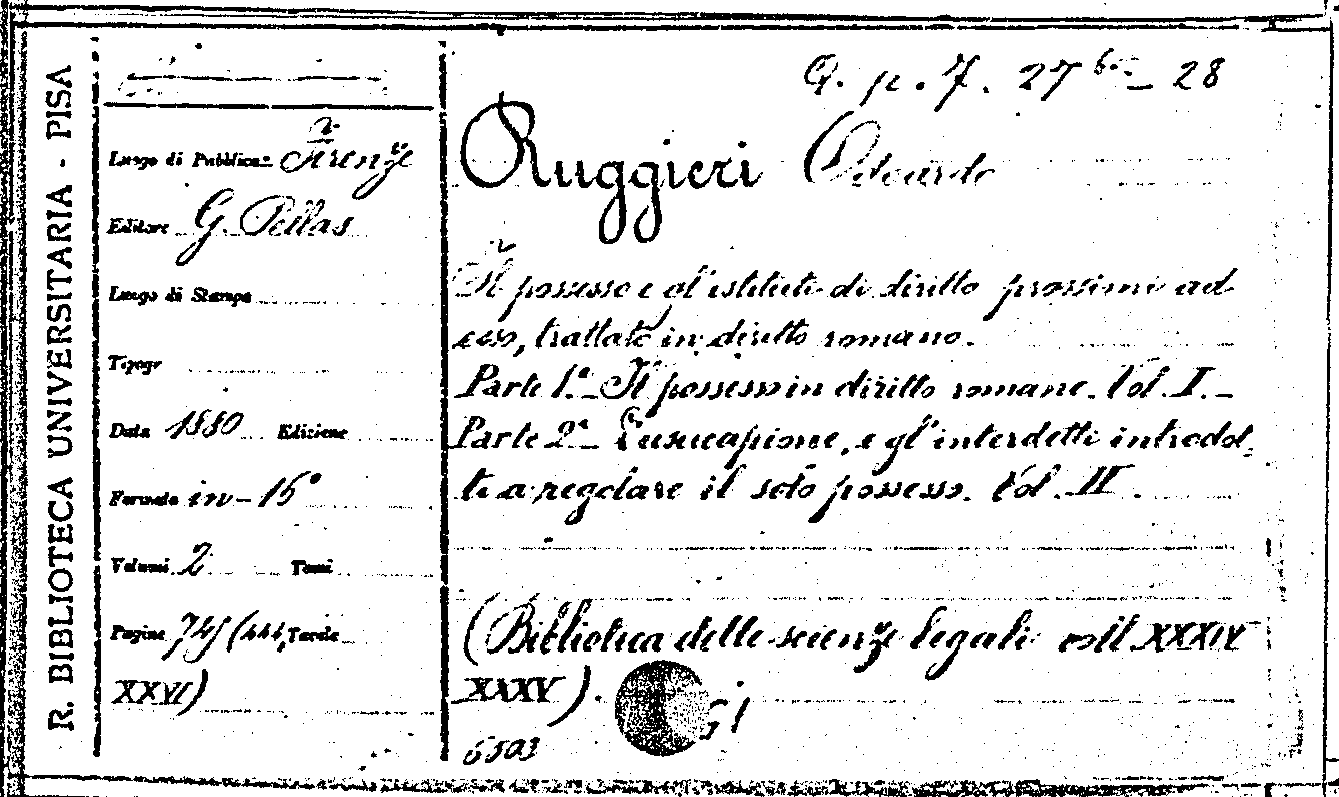 R. BIBLIOTECA UNIVERSITARIA - PISA
Q. p. 7. 27 bis - 28
Ruggieri Odoardo
Luogo di Pubblicaz. Firenze
Editore G. Pellas
Luogo di Stampa
Tipogr
Data 1880 Edizione
Formato in-16°
Volumi 2 Tomi
Pagine Tavole
XXVI)
Il possesso e gl'istituti di diritto prossimi ad
esso, trattato in diritto romano.
Parte 1ª - Il possesso in diritto romano. Vol. I. -
Parte 2ª - L'usucapione, e gl'interdetti introdot-
ti a regolare il solo possesso. Vol. II.
(Biblioteca delle scienze legali voll. XXXIV
XXXV).
6503